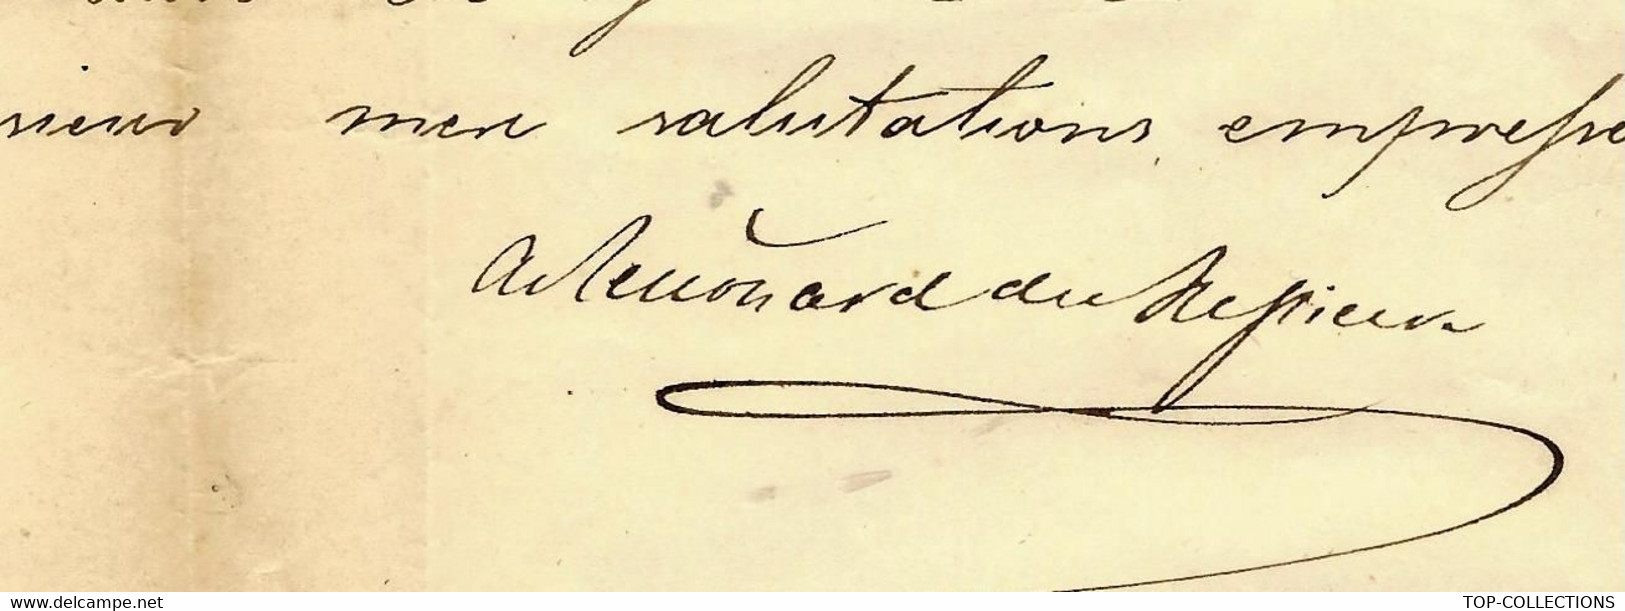 sieur mes salutations empresse
A. Leuönard du Ressieux
www.delcampe.net
TOP-COLLECTIONS